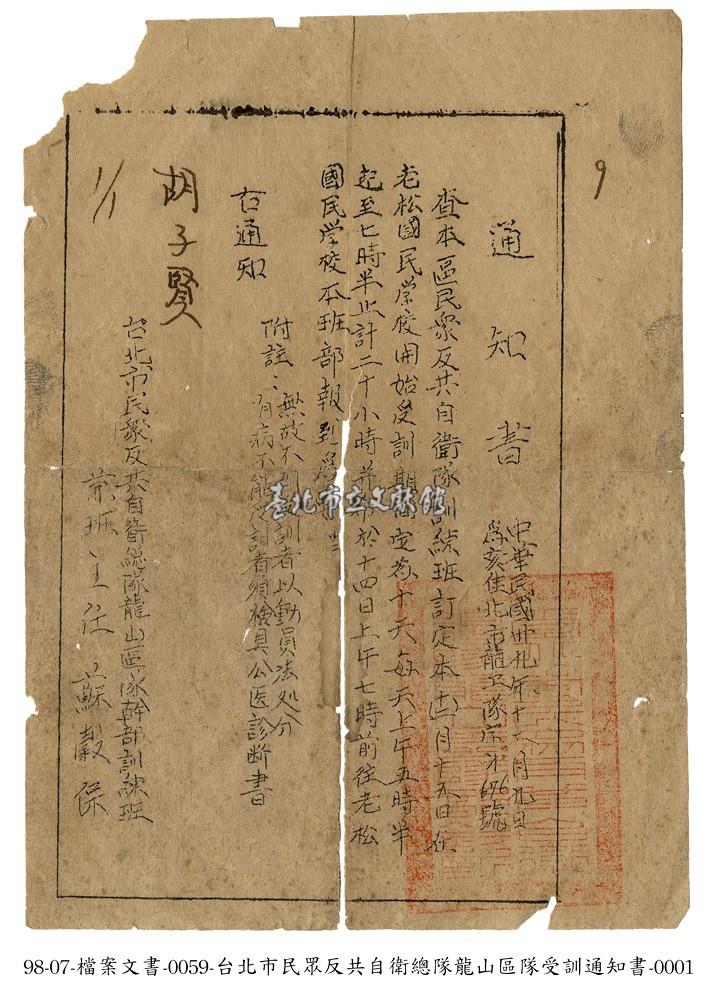 9
通知書
中華民國卅九年十一月九日
為亥佳北市龍卫隊字第676號
查本區民眾反共自衛隊訓練班訂定本(十一)月十五日在
老松國民学校開始受訓期間定為十天每天上午五時半
起至七時半止計二十小時并希於十四日上午七時前往老松
國民学校本班部報到為
右通知
附註：無故不到受訓者以動員法処分
有病不能受訓者須檢具公医診断書
胡子賢
台北市民眾反共自衛總隊龍山區隊幹部訓練班
兼班主任 蘇穀保
臺北市立文獻館
98-07-檔案文書-0059-台北市民眾反共自衛總隊龍山區隊受訓通知書-0001